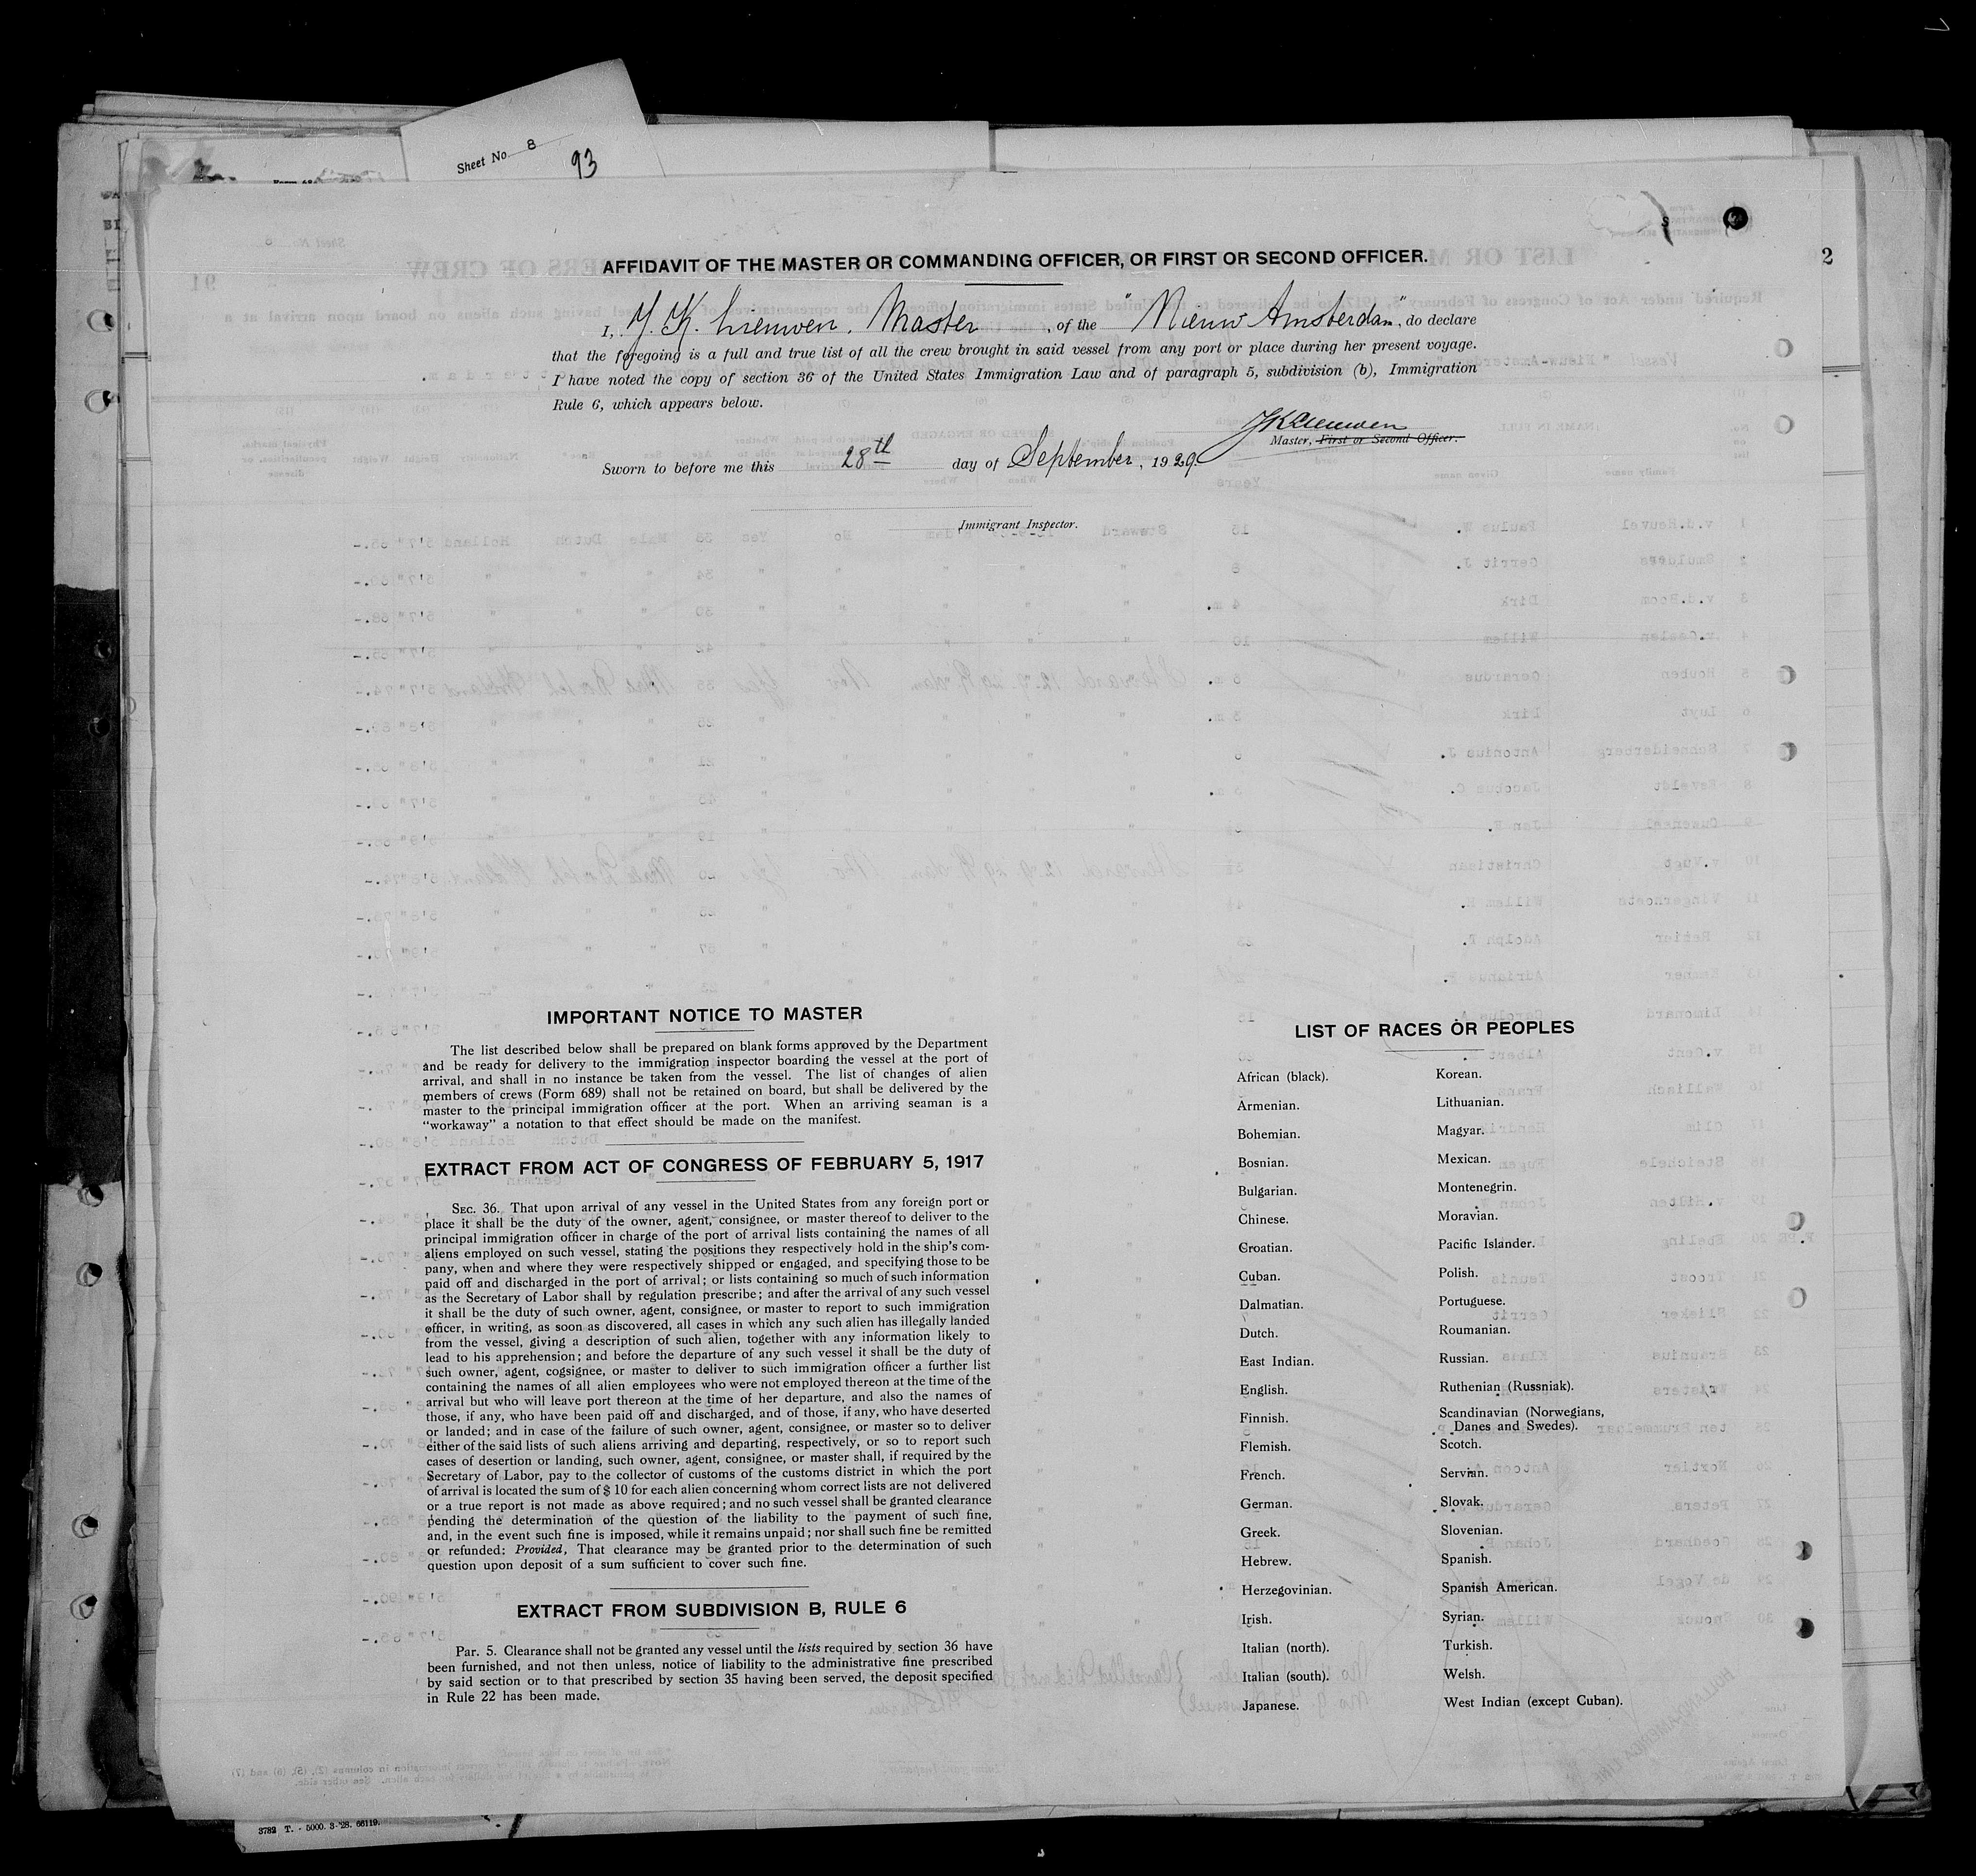 Sheet No 8
93
2
AFFIDAVIT OF THE MASTER OR COMMANDING OFFICER, OR FIRST OR SECOND OFFICER.
I, Master, of the "Nieuw Amsterdam", do declare
that the foregoing is a full and true list of all the crew brought in said vessel from any port or place during her present voyage.
I have noted the copy of section 36 of the United States Immigration Law and of paragraph 5, subdivision (b), Immigration
Rule 6, which appears below.
Master, First or Second Officer.
Sworn to before me this 28th day of September, 1929.
Immigrant Inspector.
IMPORTANT NOTICE TO MASTER
The list described below shall be prepared on blank forms approved by the Department
and be ready for delivery to the immigration inspector boarding the vessel at the port of
arrival, and shall in no instance be taken from the vessel. The list of changes of alien
members of crews (Form 689) shall not be retained on board, but shall be delivered by the
master to the principal immigration officer at the port. When an arriving seaman is a
"workaway" a notation to that effect should be made on the manifest.
EXTRACT FROM ACT OF CONGRESS OF FEBRUARY 5, 1917
SEC. 36. That upon arrival of any vessel in the United States from any foreign port or
place it shall be the duty of the owner, agent, consignee, or master thereof to deliver to the
principal immigration officer in charge of the port of arrival lists containing the names of all
aliens employed on such vessel, stating the positions they respectively hold in the ship's com-
pany, when and where they were respectively shipped or engaged, and specifying those to be
paid off and discharged in the port of arrival; or lists containing so much of such information
as the Secretary of Labor shall by regulation prescribe; and after the arrival of any such vessel
it shall be the duty of such owner, agent, consignee, or master to report to such immigration
officer, in writing, as soon as discovered, all cases in which any such alien has illegally landed
from the vessel, giving a description of such alien, together with any information likely to
lead to his apprehension; and before the departure of any such vessel it shall be the duty of
such owner, agent, cogsignee, or master to deliver to such immigration officer a further list
containing the names of all alien employees who were not employed thereon at the time of the
arrival but who will leave port thereon at the time of her departure, and also the names of
those, if any, who have been paid off and discharged, and of those, if any, who have deserted
or landed; and in case of the failure of such owner, agent, consignee, or master so to deliver
either of the said lists of such aliens arriving and departing, respectively, or so to report such
cases of desertion or landing, such owner, agent, consignee, or master shall, if required by the
Secretary of Labor, pay to the collector of customs of the customs district in which the port
of arrival is located the sum of $ 10 for each alien concerning whom correct lists are not delivered
or a true report is not made as above required; and no such vessel shall be granted clearance
pending the determination of the question of the liability to the payment of such fine,
and, in the event such fine is imposed, while it remains unpaid; nor shall such fine be remitted
or refunded: Provided, That clearance may be granted prior to the determination of such
question upon deposit of a sum sufficient to cover such fine.
EXTRACT FROM SUBDIVISION B, RULE 6
Par. 5. Clearance shall not be granted any vessel until the lists required by section 36 have
been furnished, and not then unless, notice of liability to the administrative fine prescribed
by said section or to that prescribed by section 35 having been served, the deposit specified
in Rule 22 has been made.
LIST OF RACES OR PEOPLES
African (black).
Armenian.
Bohemian.
Bosnian.
Bulgarian.
Chinese.
Croatian.
Cuban.
Dalmatian.
Dutch.
East Indian.
English.
Finnish.
Flemish.
French.
German.
Greek.
Hebrew.
Herzegovinian.
Irish.
Italian (north).
Italian (south).
Japanese.
Korean.
Lithuanian.
Magyar.
Mexican.
Montenegrin.
Moravian.
Pacific Islander.
Polish.
Portuguese.
Roumanian.
Russian.
Ruthenian (Russniak).
Scandinavian (Norwegians,
Danes and Swedes).
Scotch.
Servian.
Slovak.
Slovenian.
Spanish.
Spanish American.
Syrian.
Turkish.
Welsh.
West Indian (except Cuban).
3782 T. - 5000. 3-'28. 66119.